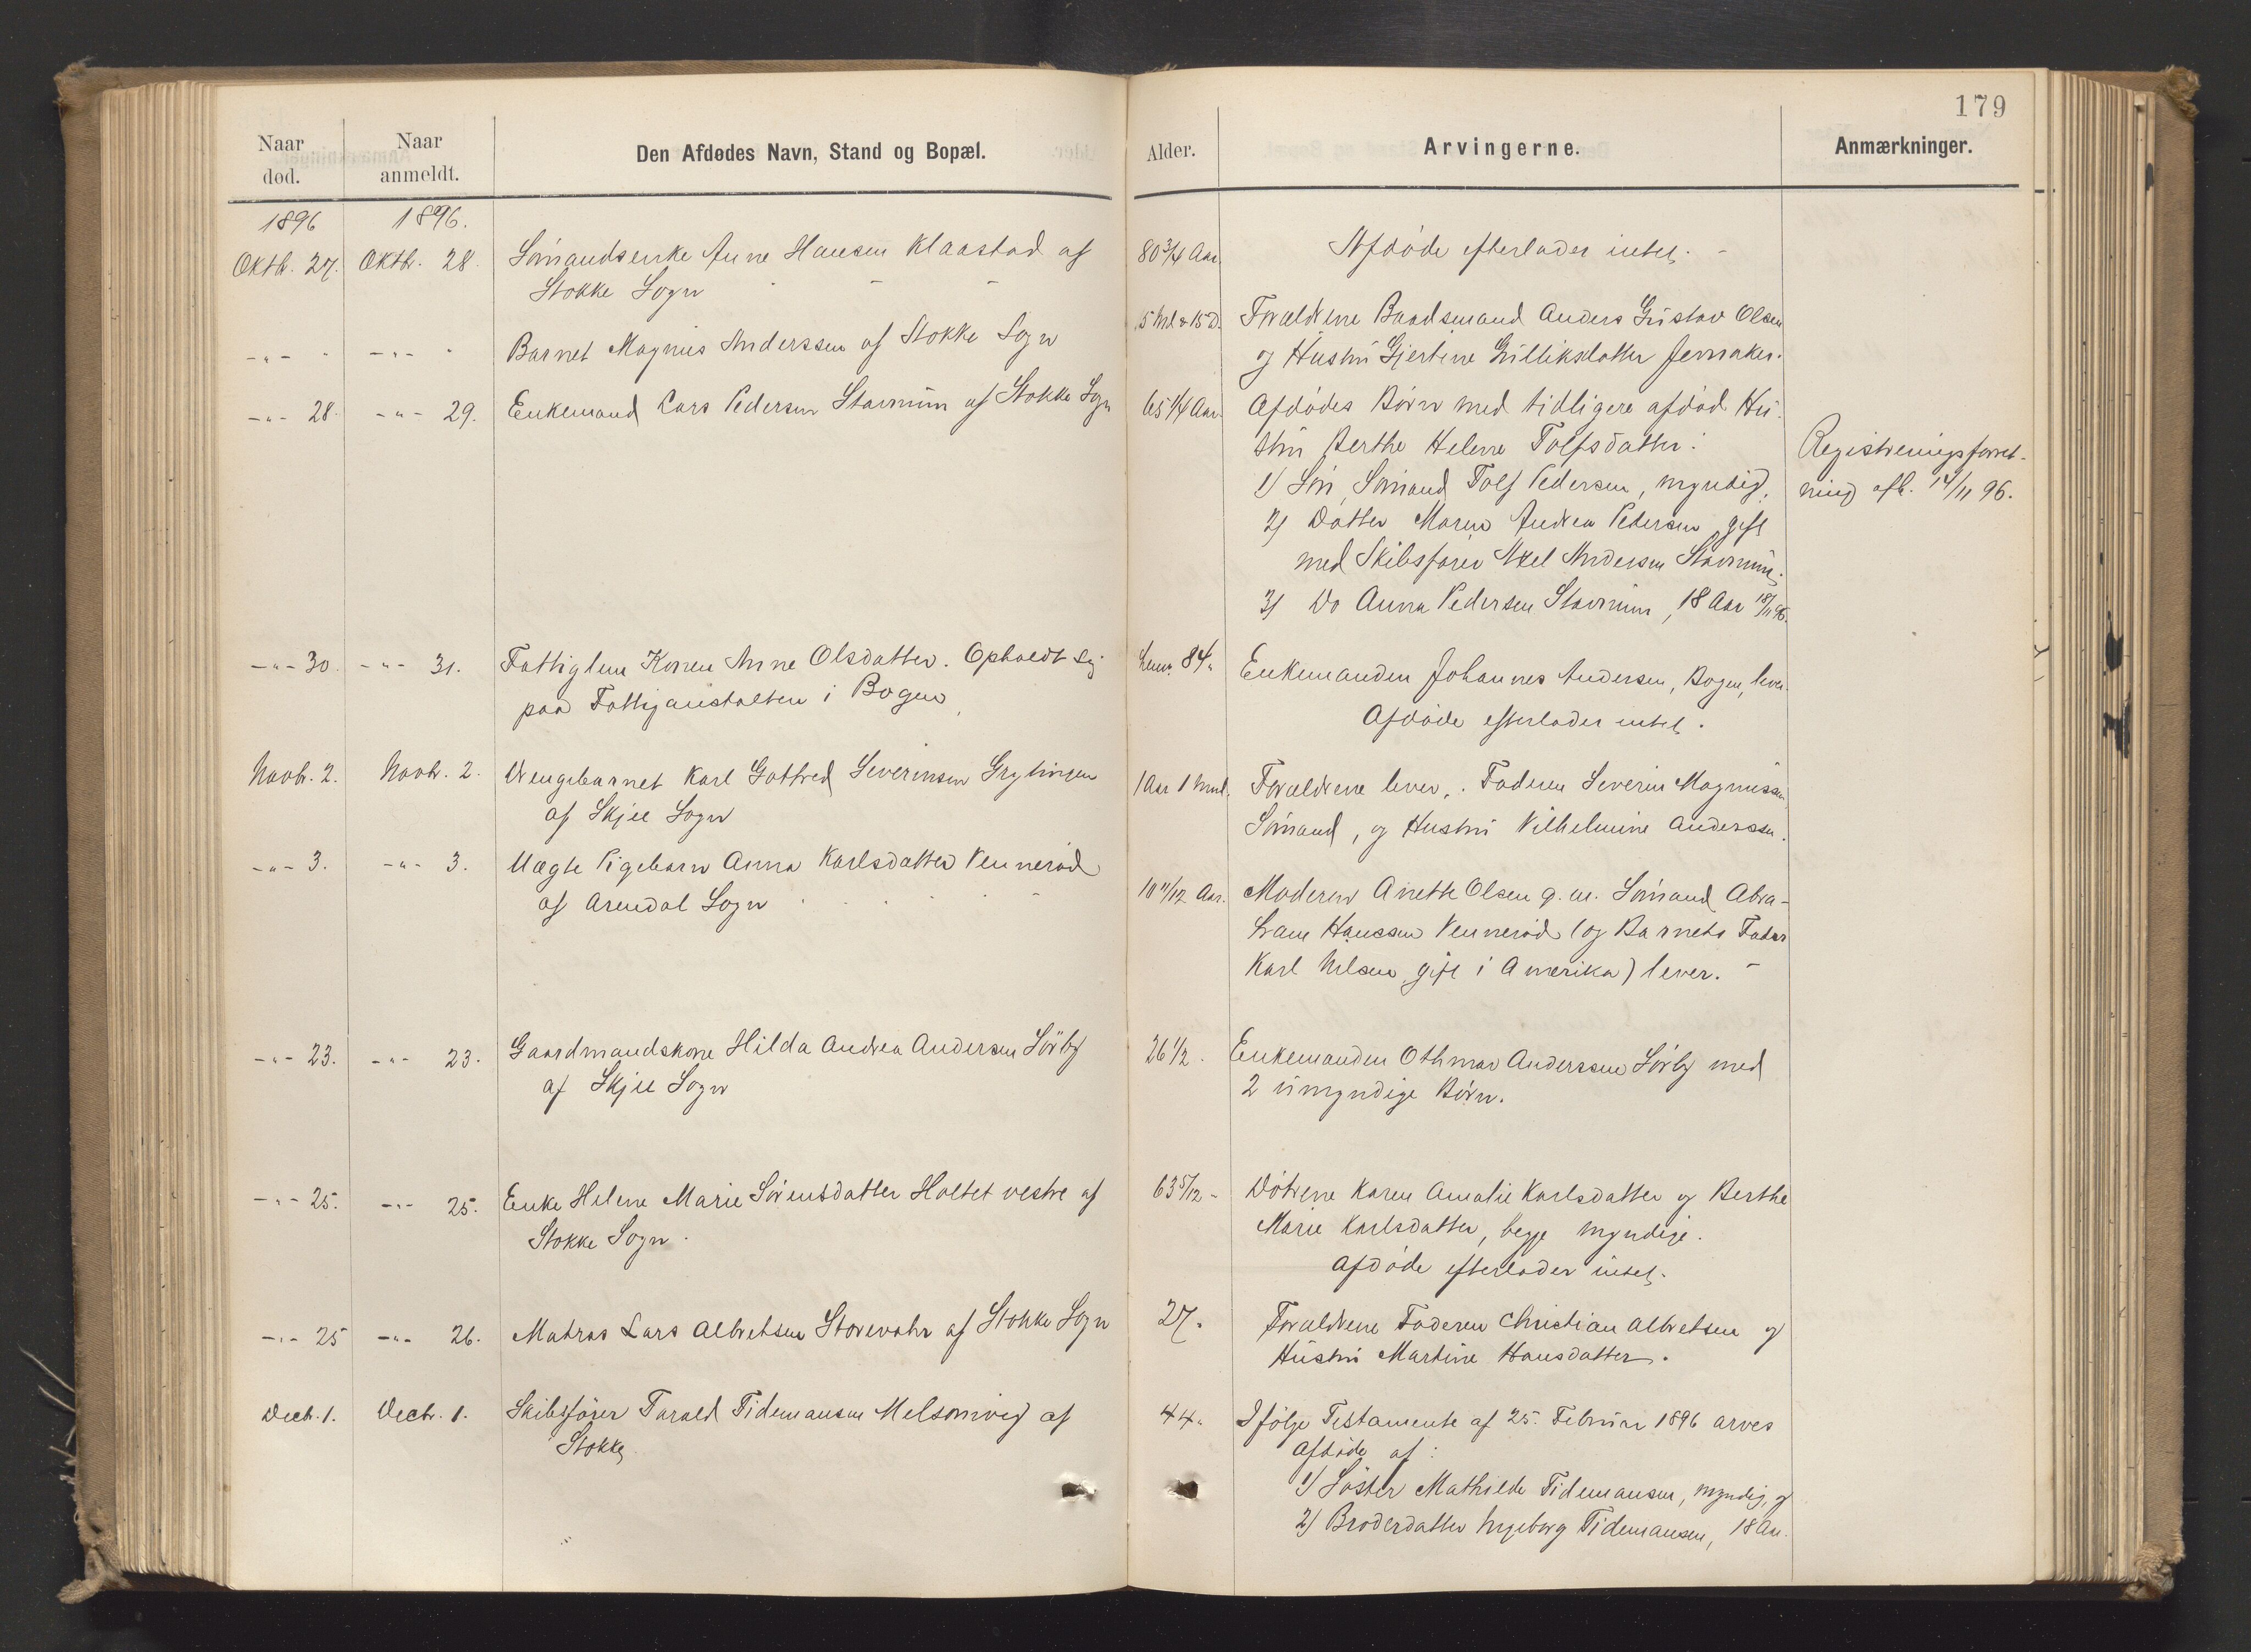 179
Naar død.
Naar anmeldt.
Den Afdødes Navn, Stand og Bopæl.
Alder.
Arvingerne.
Anmærkninger.
1896 1896.
Oktb. 27. Oktb. 28. Sömandsenke Anne Hansen Klaastad af
Stokke Sogn
80 3/4 Aar. Afdøde efterlader intet. -
-"- " -"- " Barnet Magnus Anderssen af Stokke Sogn
5 Md & 15 D. Forældrene Baadsmand Anders Gustav Olsen
og Hustru Gjertine Gulliksdatter
-"- 28. -"- 29. Enkemand Lars Pedersen Stavnum af Stokke Sogn
65 1/4 Aar. Afdödes Börn med tidligere afdöd Hu-
stru Berthe Helene Tolfsdatter:
1) Sön, Sömand Tolf Pedersen, myndig,
2) Datter Maren Andrea Pedersen gift
med Skibsförer Axel Andersen Stavnum,
3) Do Anna Pedersen Stavnum, 18 Aar 18/11 96.
Registreringsforret-
ning afh. 14/11 96.
-"- 30. -"- 31. Fattiglem Konen Anne Olsdatter. Opholdt sig
paa Fattiganstalten i Bogen
84. Enkemanden Johannes Andersen, Bogen, lever.
Afdöde efterlader intet.
Novb. 2. Novb. 2. Drengebarnet Karl Gotfred Severinsen Grytingen
af Skjee Sogn
1 Aar 1 Mnd. Forældrene lever. Faderen Severin Magnussen,
Sömand, og Hustru Vilhelmine Anderssen.
-"- 3. -"- 3. Uægte Pigebarn Anna Karlsdatter Vennerød
af Arendal Sogn
10 11/12 Aar. Moderen Anette Olsen g. m. Sömand Abra-
ham Hanssen Vennerød (og Barnets Fader
Karl Nilsen, gift i Amerika) lever. -
-"- 23. -"- 23. Gaardmandskone Hilda Andrea Andersen Sörby
af Skjee Sogn
26 1/2. Enkemanden Othmar Anderssen Sörby med
2 umyndige Börn.
-"- 25. -"- 25. Enke Helene Marie Sörensdatter Holtet vestre af
Stokke Sogn.
63 5/12 - Döttrene Karen Amalie Karlsdatter og Berthe
Marie Karlsdatter, begge myndige.
Afdöde efterlader intet.
-"- 25 -"- 26. Matros Lars Albretsen Storevahr af Stokke Sogn
27. Forældrene Faderen Christian Albretsen og
Hustru Martine Hansdatter.
Decb. 1. Decbr. 1. Skibsförer Tarald Tidemansen Melsomvig af
Stokke
44. Ifölge Testamente af 25. Februar 1896 arves
Afdöde af:
1) Söster Mathilde Tidemansen, myndig, og
2) Broderdatter Ingeborg Tidemansen, 18 Aar.